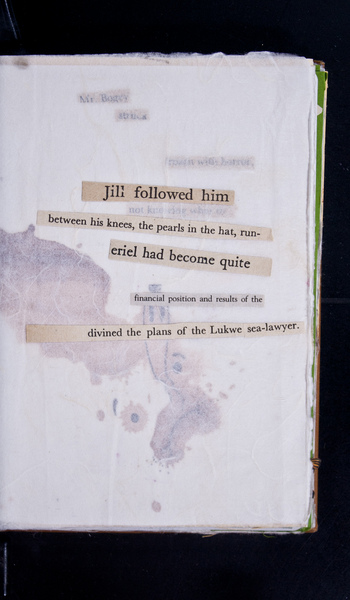 Mr. Bossy
Jill followed him
between his knees, the pearls in the hat, run-
eriel had become quite
financial position and results of the
divined the plans of the Lukwe sea-lawyer.